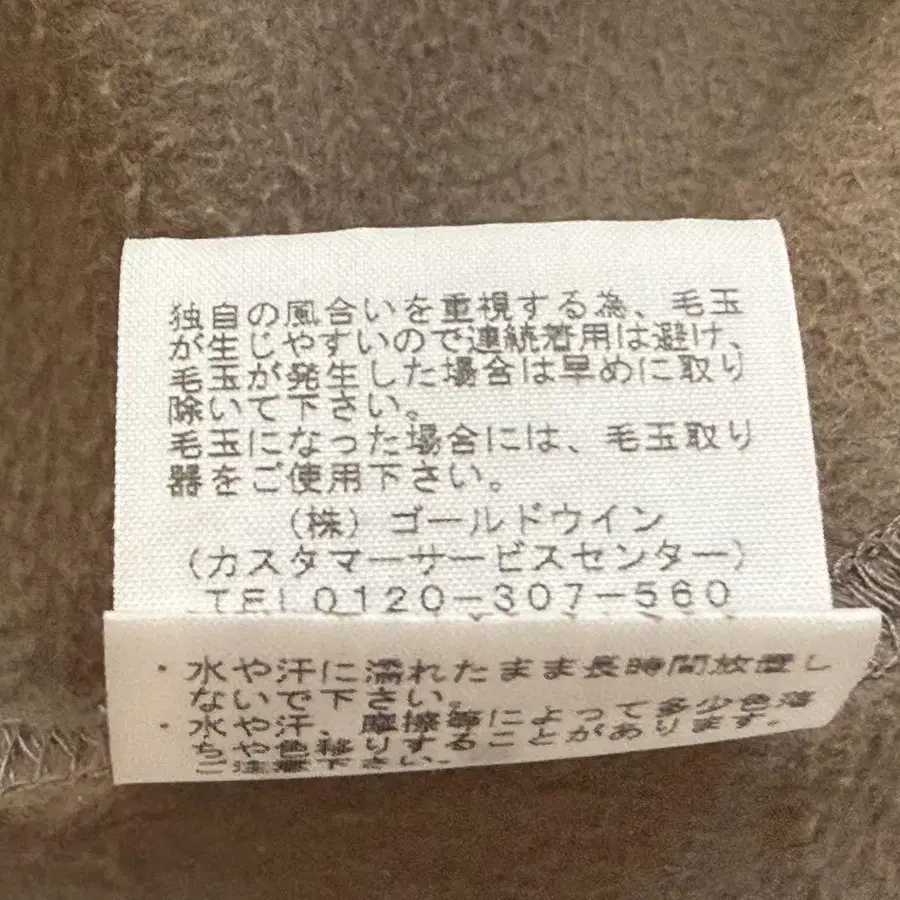 独自の風合いを重視する為、毛玉
が生じやすいので連続着用は避け、
毛玉が発生した場合は早めに取り
除いて下さい。
毛玉になった場合には、毛玉取り
器をご使用下さい。
(株)ゴールドウイン
(カスタマーサービスセンター)
TEL0120-307-560
・水や汗に濡れたまま長時間放置し
ないで下さい。
・水や汗、摩擦等によって多少色落
ちや色移りすることがあります。
ご注意下さい。